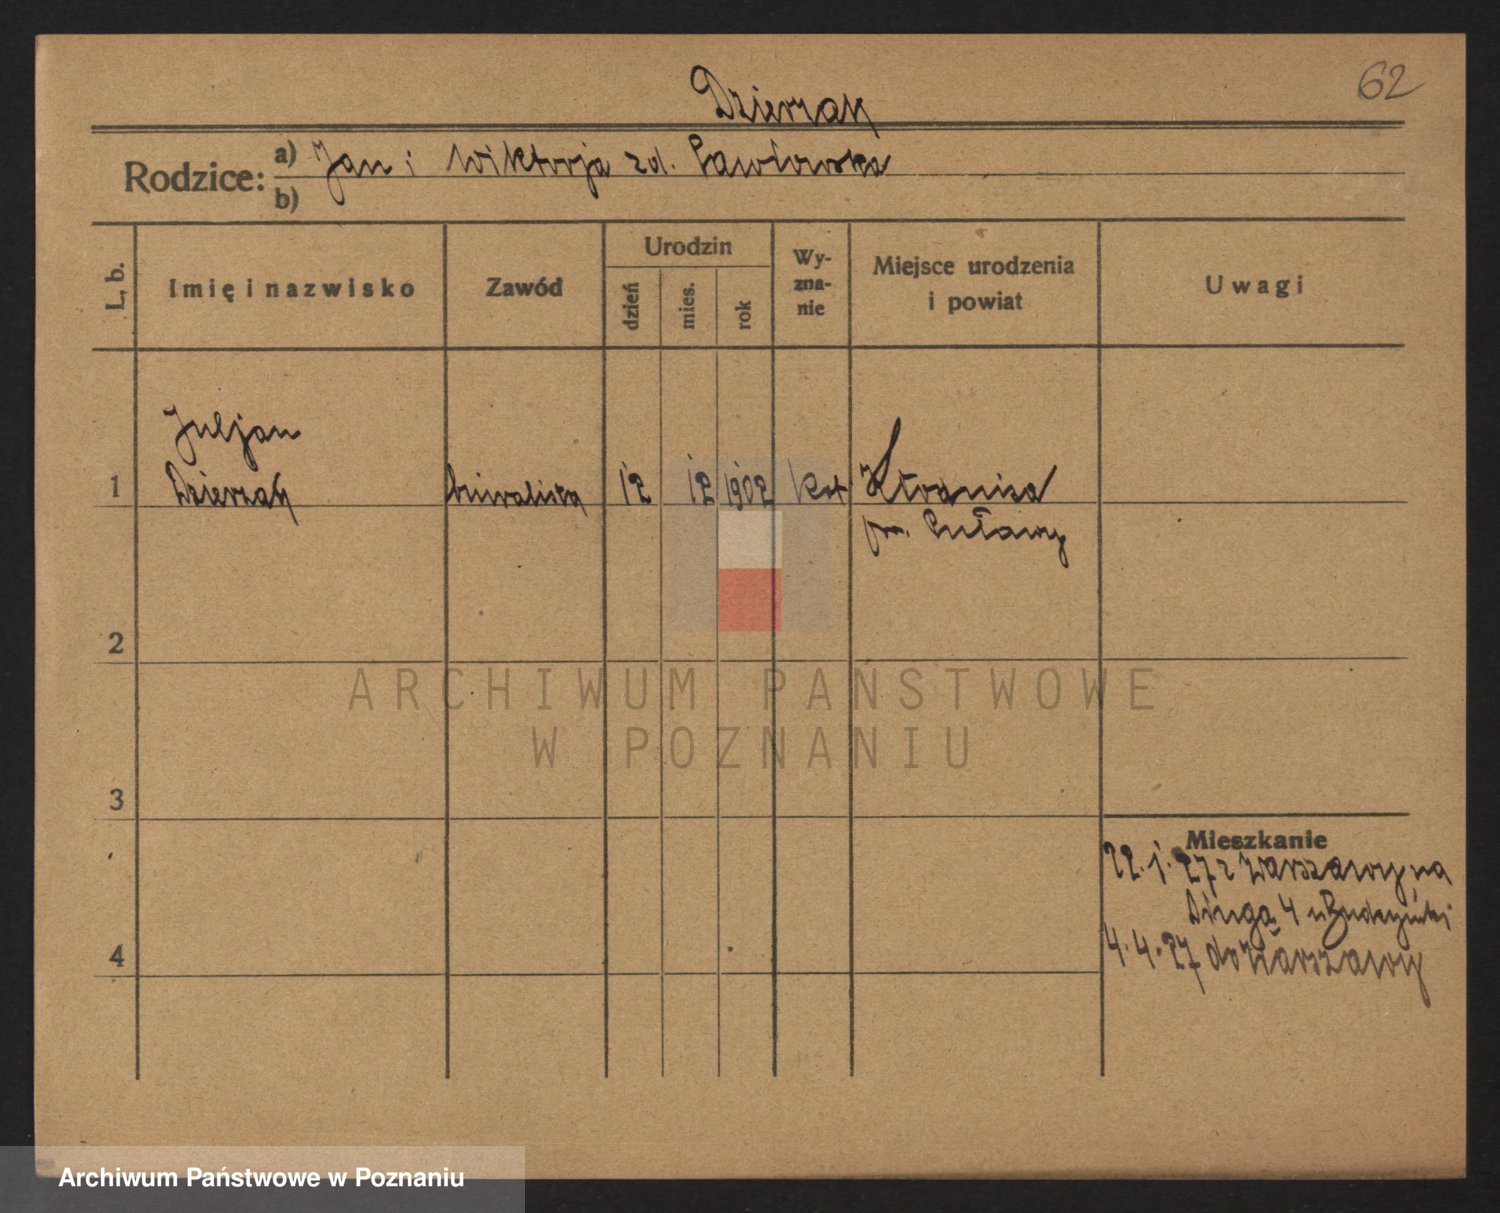 62
Dzierzak
Rodzice: a) Jan i Wiktorja zd. Pawłowska
b)
L. b.
Imię i nazwisko
Zawód
Urodzin
dzień
mies.
rok
Wy-
zna-
nie
Miejsce urodzenia
i powiat
Uwagi
Juljan
1 Dzierzak 12 12 1902 kat
pow. Puławy
2
ARCHIWUM PAŃSTWOWE
W POZNANIU
3
Mieszkanie
22. 1. 27 z Warszawy na
Długa 4 u
4. 4. 27 do Warszawy
4
Archiwum Państwowe w Poznaniu